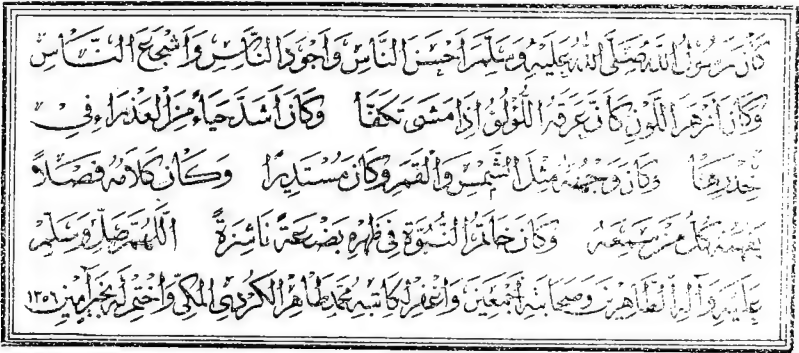 كان رسول الله صلى الله عليه وسلم أحسن الناس وأجود الناس وأشجع الناس
وكان أزهر اللون كأن عرقه اللؤلؤ إذا مشى تكفأ وكان أشد حياء من العذراء في
خدرها وكان وجهه مثل الشمس والقمر وكان مستديرا وكان كلامه فصلاً
يفهمه كل من سمعه وكان خاتم النبوة في ظهره بضعة ناشزة اللهم صل وسلم
عليه وآله الطاهرين وصحابته أجمعين واغفر لكاتبه محمد طاهر الكردي المكي واختم له بخير آمين ١٣٥٦